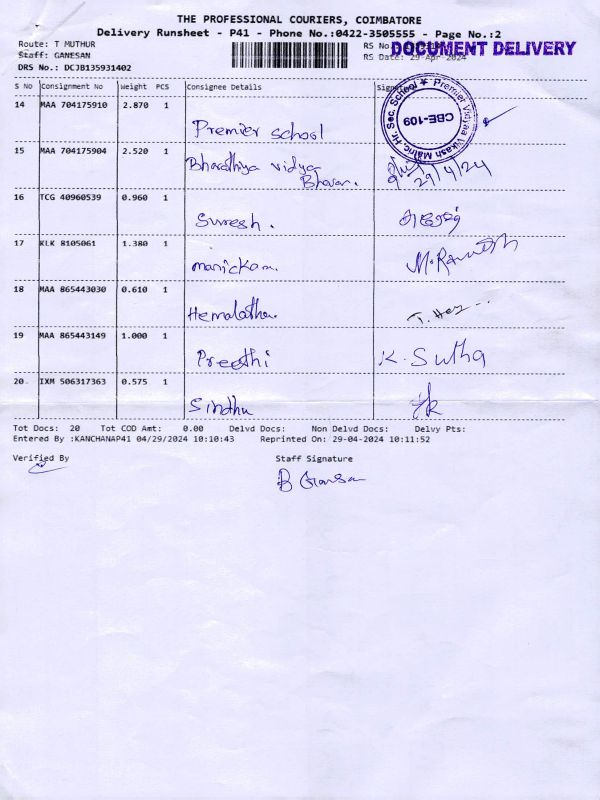 THE PROFESSIONAL COURIERS, COIMBATORE
Delivery Runsheet - P41 - Phone No.:0422-3505555 - Page No.:2
Route: T MUTHUR
RS No.
DOCUMENT DELIVERY
Staff: GANESAN
RS Date: 29-Apr-2024
DRS No.: DCJB135931402
S No Consignment No Weight PCS Consignee Details
14 MAA 704175910 2.870 1 Premier school
Premier Vidya Vikash Matric Hr. Sec. School
CBE-109
15 MAA 704175904 2.520 1 Bharathiya vidya
Bhavan.
29/4/24
16 TCG 40960539 0.960 1 Suresh.
17 KLK 8105061 1.380 1 manickam.
18 MAA 865443030 0.610 1 Hemalatha.
19 MAA 865443149 1.000 1 Preethi K. Sutha
20 IXM 506317363 0.575 1 Sindhu
Tot Docs: 20 Tot COD Amt: 0.00 Delvd Docs: Non Delvd Docs: Delvy Pts:
Entered By :KANCHANAP41 04/29/2024 10:10:43 Reprinted On: 29-04-2024 10:11:52
Verified By Staff Signature